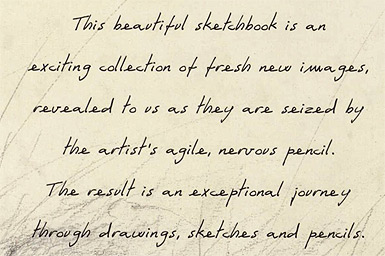 This beautiful sketchbook is an
exciting collection of fresh new images,
revealed to us as they are seized by
the artist's agile, nervous pencil.
The result is an exceptional journey
through drawings, sketches and pencils.